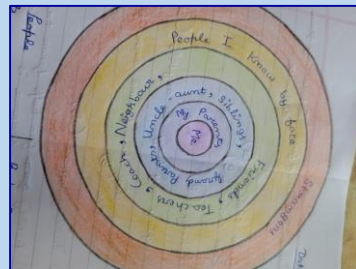 People
People I know by face
Strangers
Neighbour,
Friends, Teachers, Coach,
Uncle-aunt, Siblings,
Grand Parents,
My Parents
Me